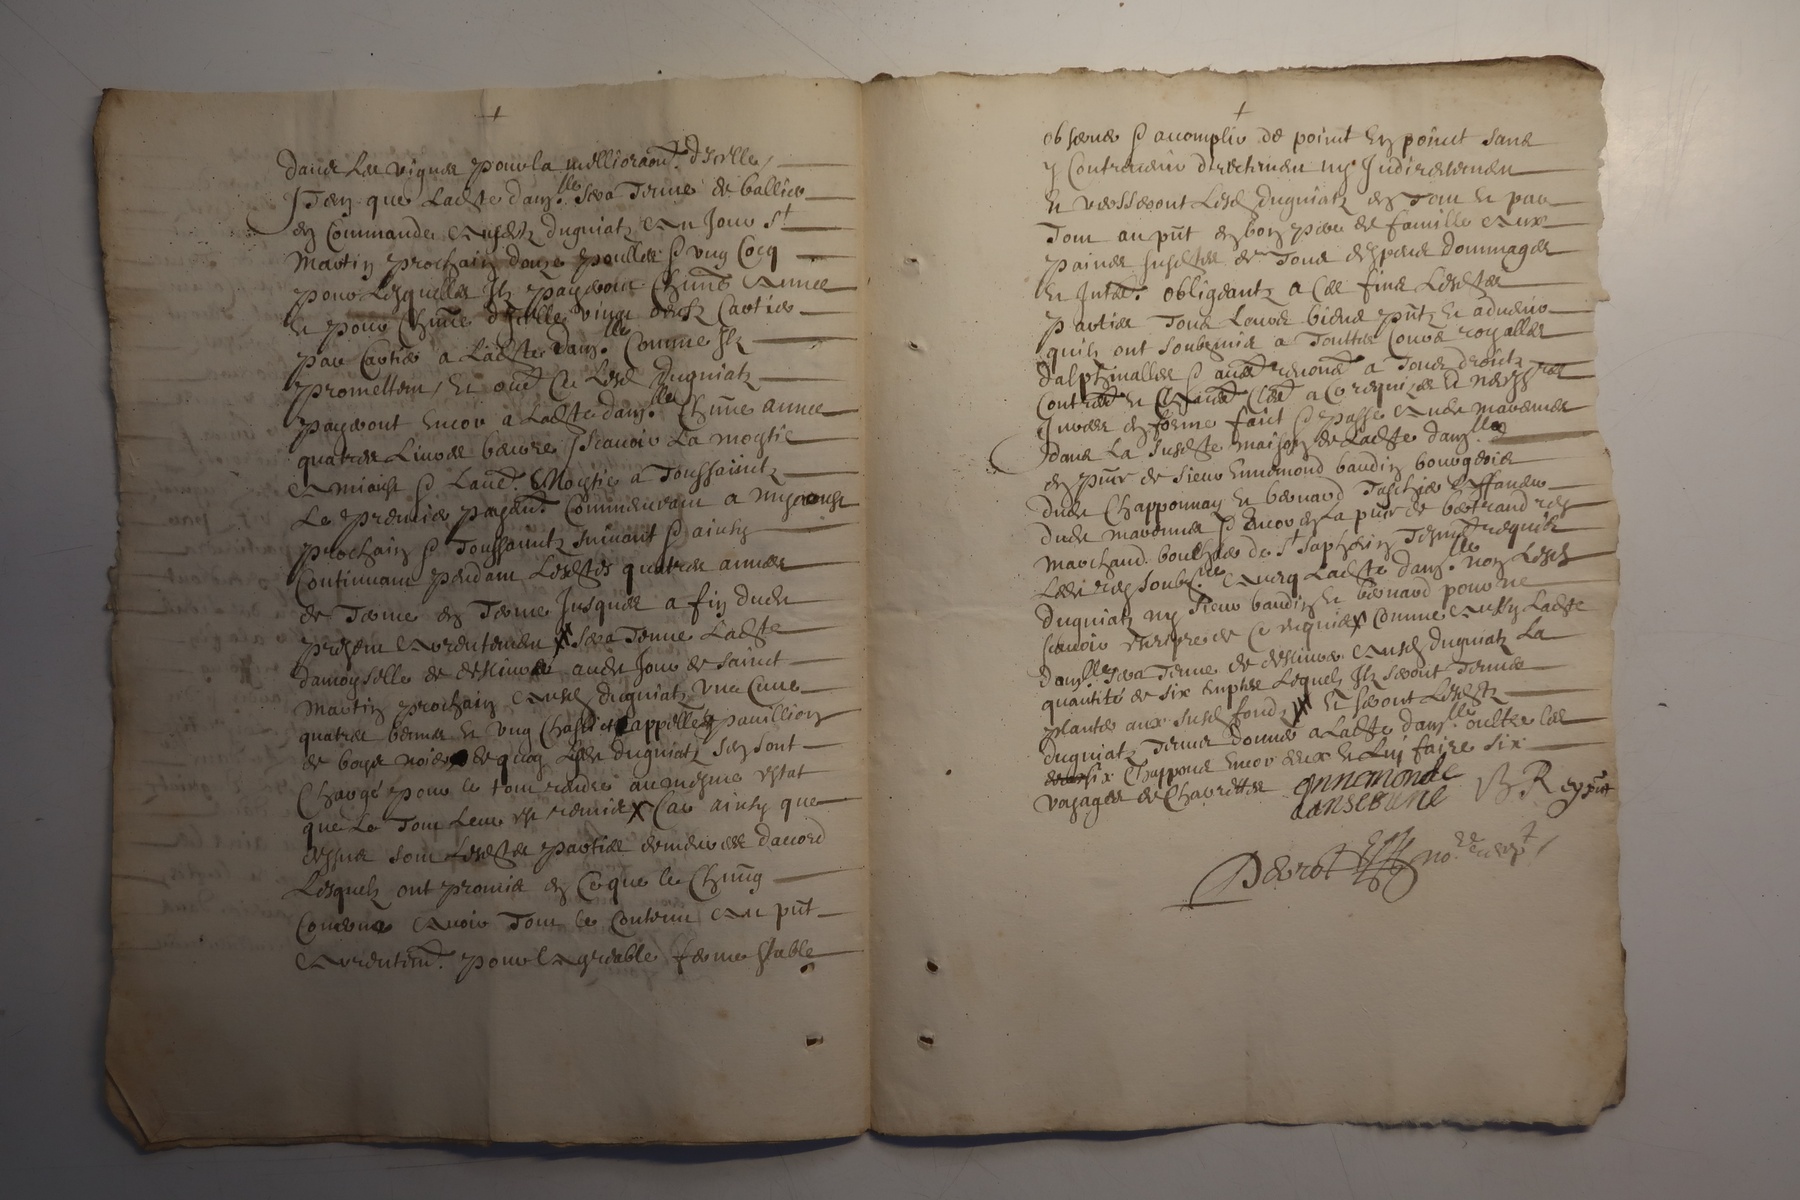 dans les vignes pour la mellioraon.t d'icelles
Item que ladte damlle sera tenue de ballier
en commande ausdtz dugniatz au Jour st
martin prochain douze poulles & ung Cocq
pour lesquelles Ilz payeront chune annee
et pour chune d'icelles vingt oeufz cartier
par cartier a ladte damlle comme Ilz
promettent, et oultre ce lesd dugniatz
payeront encor a ladte damlle chune annee
quatre livres beurre scavoir la moytie
a myaost & l'aut.e moytie a Toussainctz
le premier payem.t commencant a myaoust
prochain & Toussainctz suivant & ainsy
continuant pendant lesdtes quatre annees
de terme en terme jusques a fin dudt
present arrentement x sera tenue ladte
damoyselle de deslivrer audt jour de sainct
martin prochain ausd dugniatz une cuve
quatre bennes et ung chaslict appellé pavillion
de boys noier de quoy lesd dugniatz s'en sont
chargé pour le tout rendre au mesme estat
que le tout leur est remis x Car ainsy que
dessus sont lesdtes parties demeurees d'accord
lesquelz ont promis en ce que les chung
concerne avoir tout le contenu au pnt
arrentemt. pour agreable ferme stable
observer & acomplir de point en point sans
y contrevenir directement ny Indirectement
et verseront lesd dugniatz en tout et par
tout au pnt en bon pere de famille aux
paines susdtes de tous despens dommages
et Intes. obligeantz a ces fins lesdtes
parties tous leurs biens pntz et advenir
qu'ils ont soubzmis a touttes cours royalles
dalphinalles & aues renont a tous droictz
contres et auec cles a ce requises et necessres
Invees en forme faict & passe audt marennes
dans la susdte maison de ladte damlle
en pnce de sieur Ennemond baudin bourgeois
dudt Chapponnay et bernard Taschier affaneur
dudt marennes & encor en la pnce de bertrand rey
marchand boucher de st saphorin tesmoins requis
led rey soubzne auecq ladte damlle non lesd
dugniatz ny sieur baudin et bernard pour ne
scavoir escripre de ce requis x comme aussy ladte
damlle sera tenue de deslivrer ausd dugniatz la
quantité de six emptes lesquels Ilz seront tenus
planter aux susd fondz /// et seront lesdtz
dugniatz tenus donner a ladte damlle oultre les
six chappons encor deux et luy faire six
voyages de charrettes annemonde VB Rey pnt
danserune
Perrot no.re recep.t